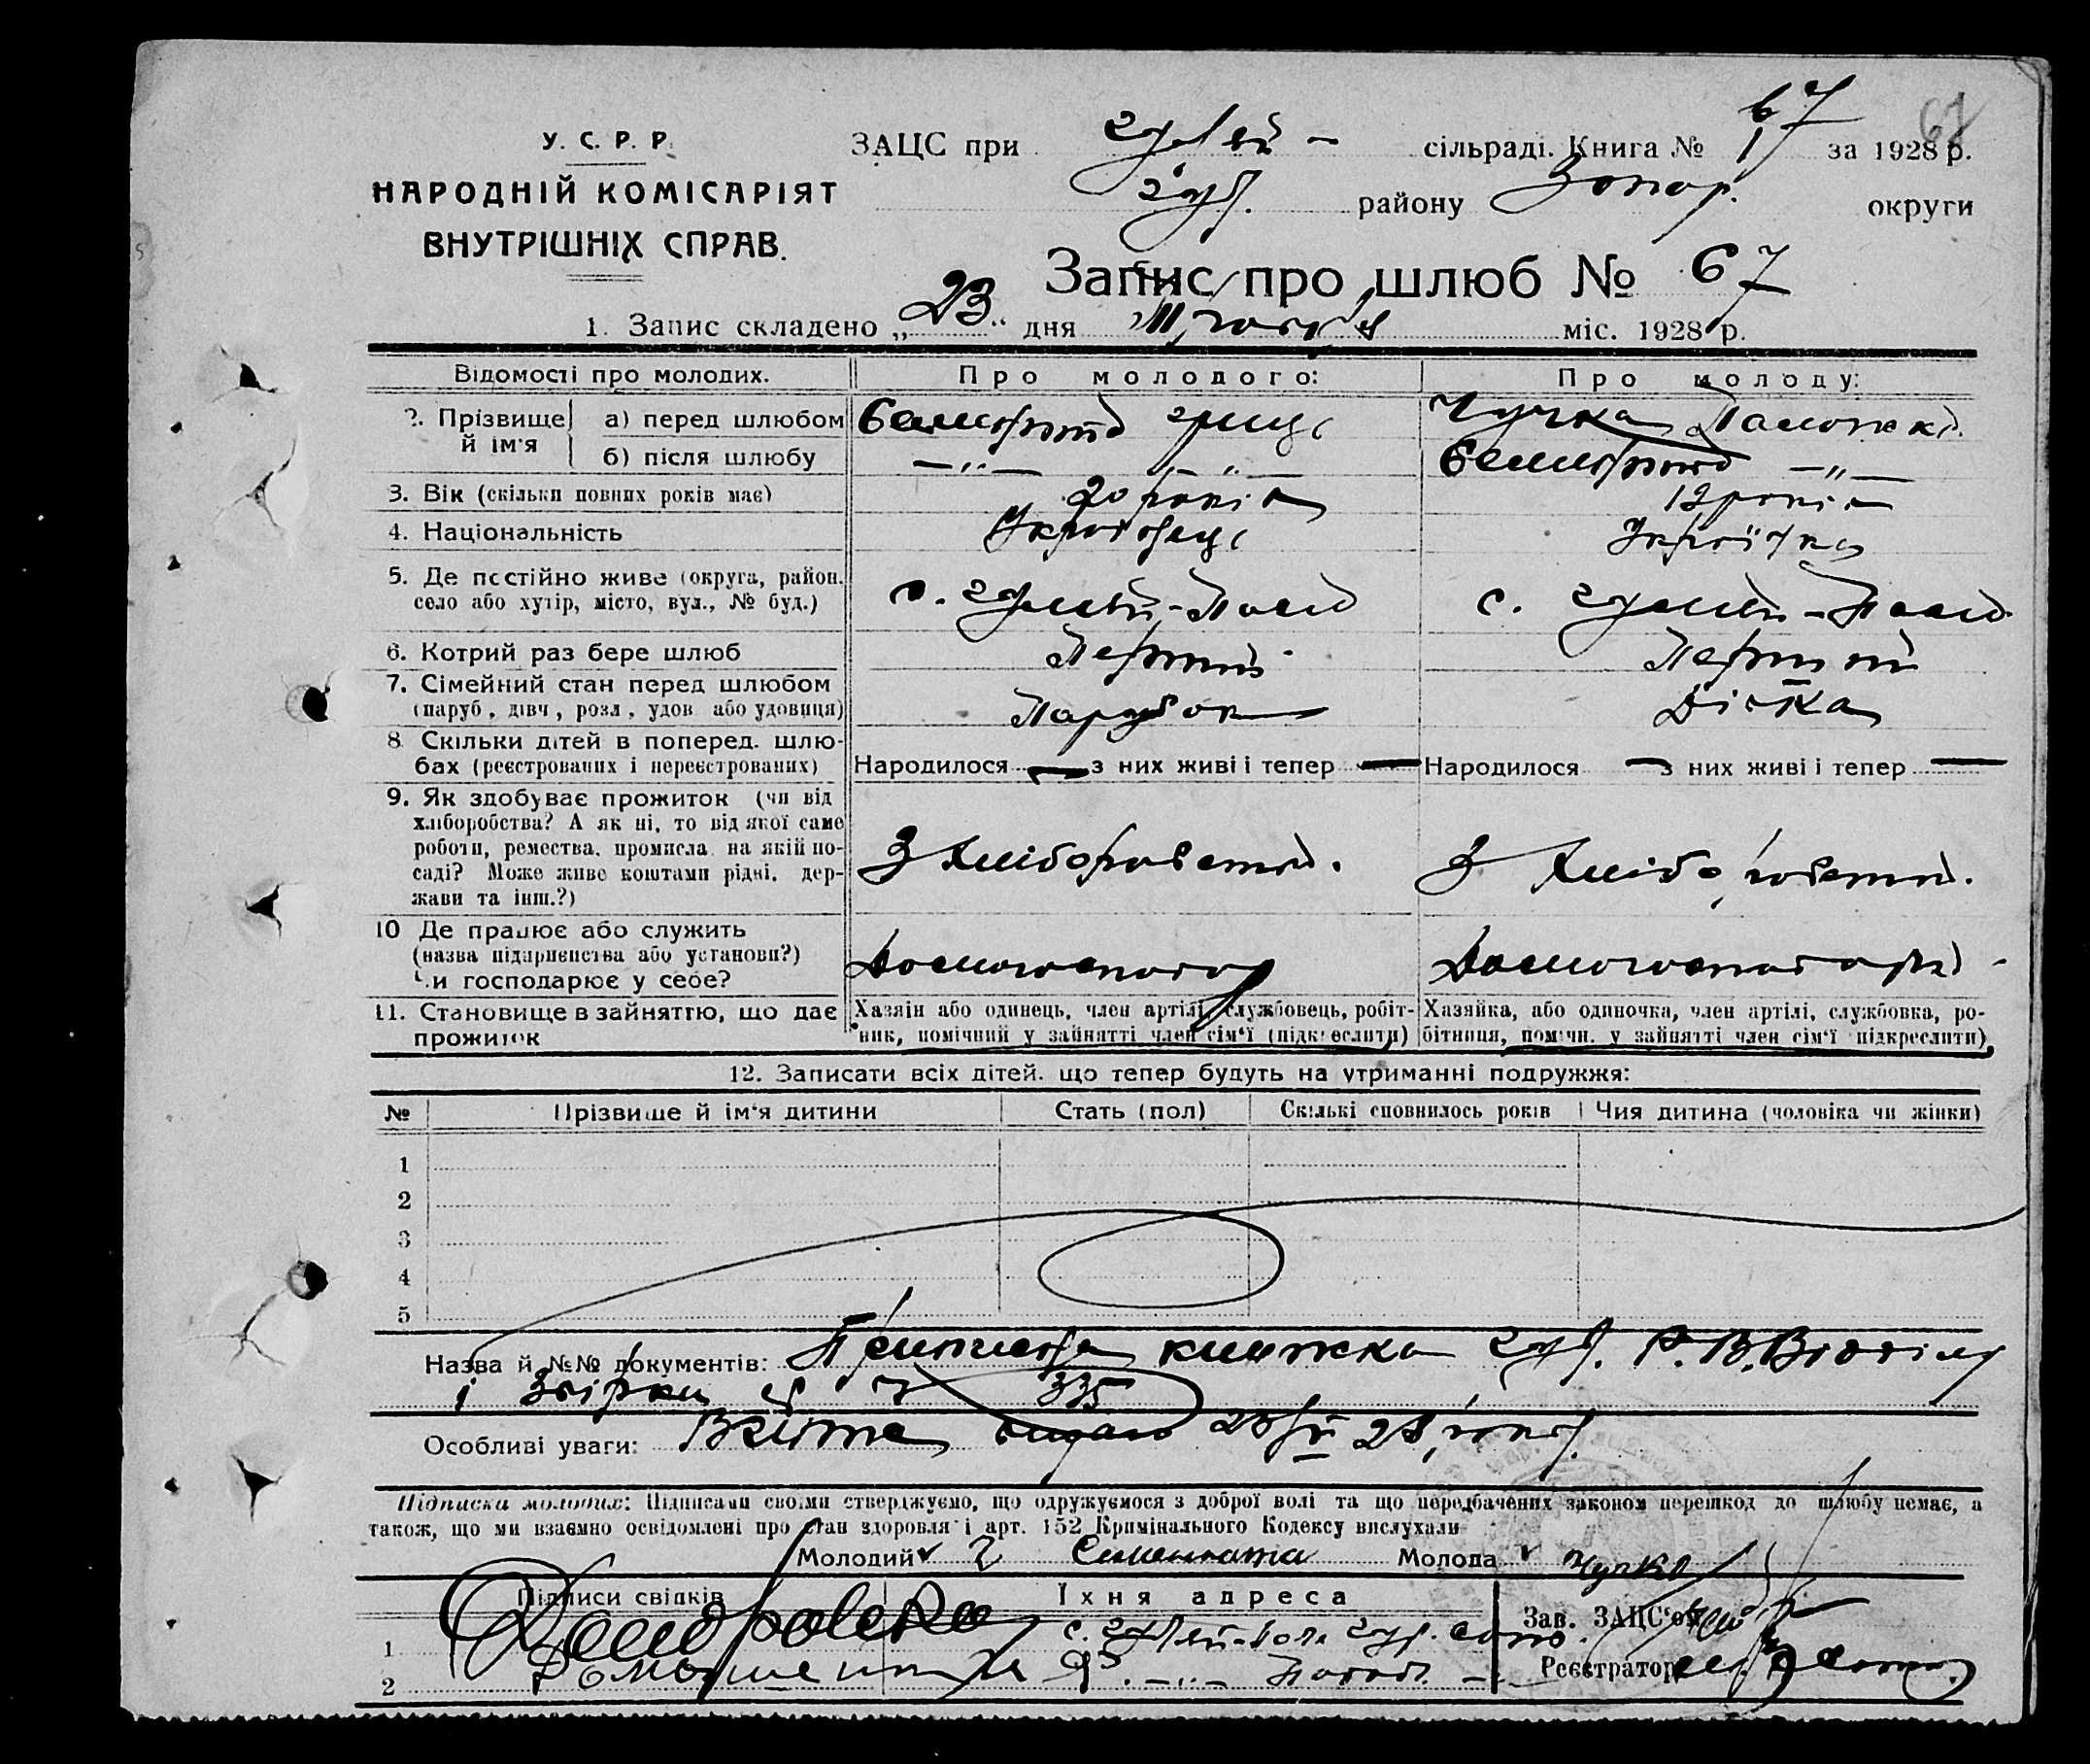 67
У. С. Р. Р.
НАРОДНІЙ КОМІСАРІЯТ
ВНУТРІШНІХ СПРАВ.
ЗАЦС при Гуляй - сільраді. Книга № 67 за 1928 р.
району Запор. округи
Запис про шлюб № 67
1. Запис складено „23“ дня міс. 1928 р.
Відомості про молодих. Про молодого: Про молоду:
2. Прізвище й ім'я а) перед шлюбом
б) після шлюбу — „ — — „ — — „ —
3. Вік (скільки повних років має) 20 років 19 років
4. Національність Українець Українка
5. Де постійно живе (округа, район, с. Гуляй-Поле с. Гуляй-Поле
село або хутір, місто, вул., № буд.)
6. Котрий раз бере шлюб Перший Перший
7. Сімейний стан перед шлюбом Парубок Дівка
(паруб., дівч., розл., удов. або удовиця)
8. Скільки дітей в поперед. шлю-
бах (реєстрованих і нереєстрованих) Народилося — з них живі і тепер — Народилося — з них живі і тепер —
9. Як здобуває прожиток (чи від
хліборобства? А як ні, то від якої саме
роботи, ремества, промисла, на якій по- З хліборобства. З хліборобства.
саді? Може живе коштами рідні, дер-
жави та інш.?)
10. Де працює або служить
(назва підприємства або установи?) Домогосподар Домогосподарка
Чи господарює у себе?
11. Становище в зайняттю, що дає
прожиток
Хазяїн або одинець, член артілі, службовець, робіт-
ник, помічний у зайнятті член сім'ї (підкреслити)
Хазяйка, або одиночка, член артілі, службовка, ро-
бітниця, помічн. у зайнятті член сім'ї (підкреслити)
12. Записати всіх дітей, що тепер будуть на утриманні подружжя:
№ Прізвище й ім'я дитини Стать (пол) Скількі сповнилось років Чия дитина (чоловіка чи жінки)
1
2
3
4
5
Назва й №№ документів: книжка Гул. Р. В. Відділу
і 335
Особливі уваги: видано 28 року.
Підписка молодих: Підписами своїми стверджуємо, що одружуємося з доброї волі та що передбачених законом перешкод до шлюбу немає, а
також, що ми взаємно освідомлені про стан здоровля і арт. 152 Кримінального Кодексу вислухали
Молодий Г Молода Чучка
Підписи свідків Їхня адреса
Зав. ЗАЦС'ом
1 с. Гуляй-Поле Гул.
2 — „ —
Реєстратор